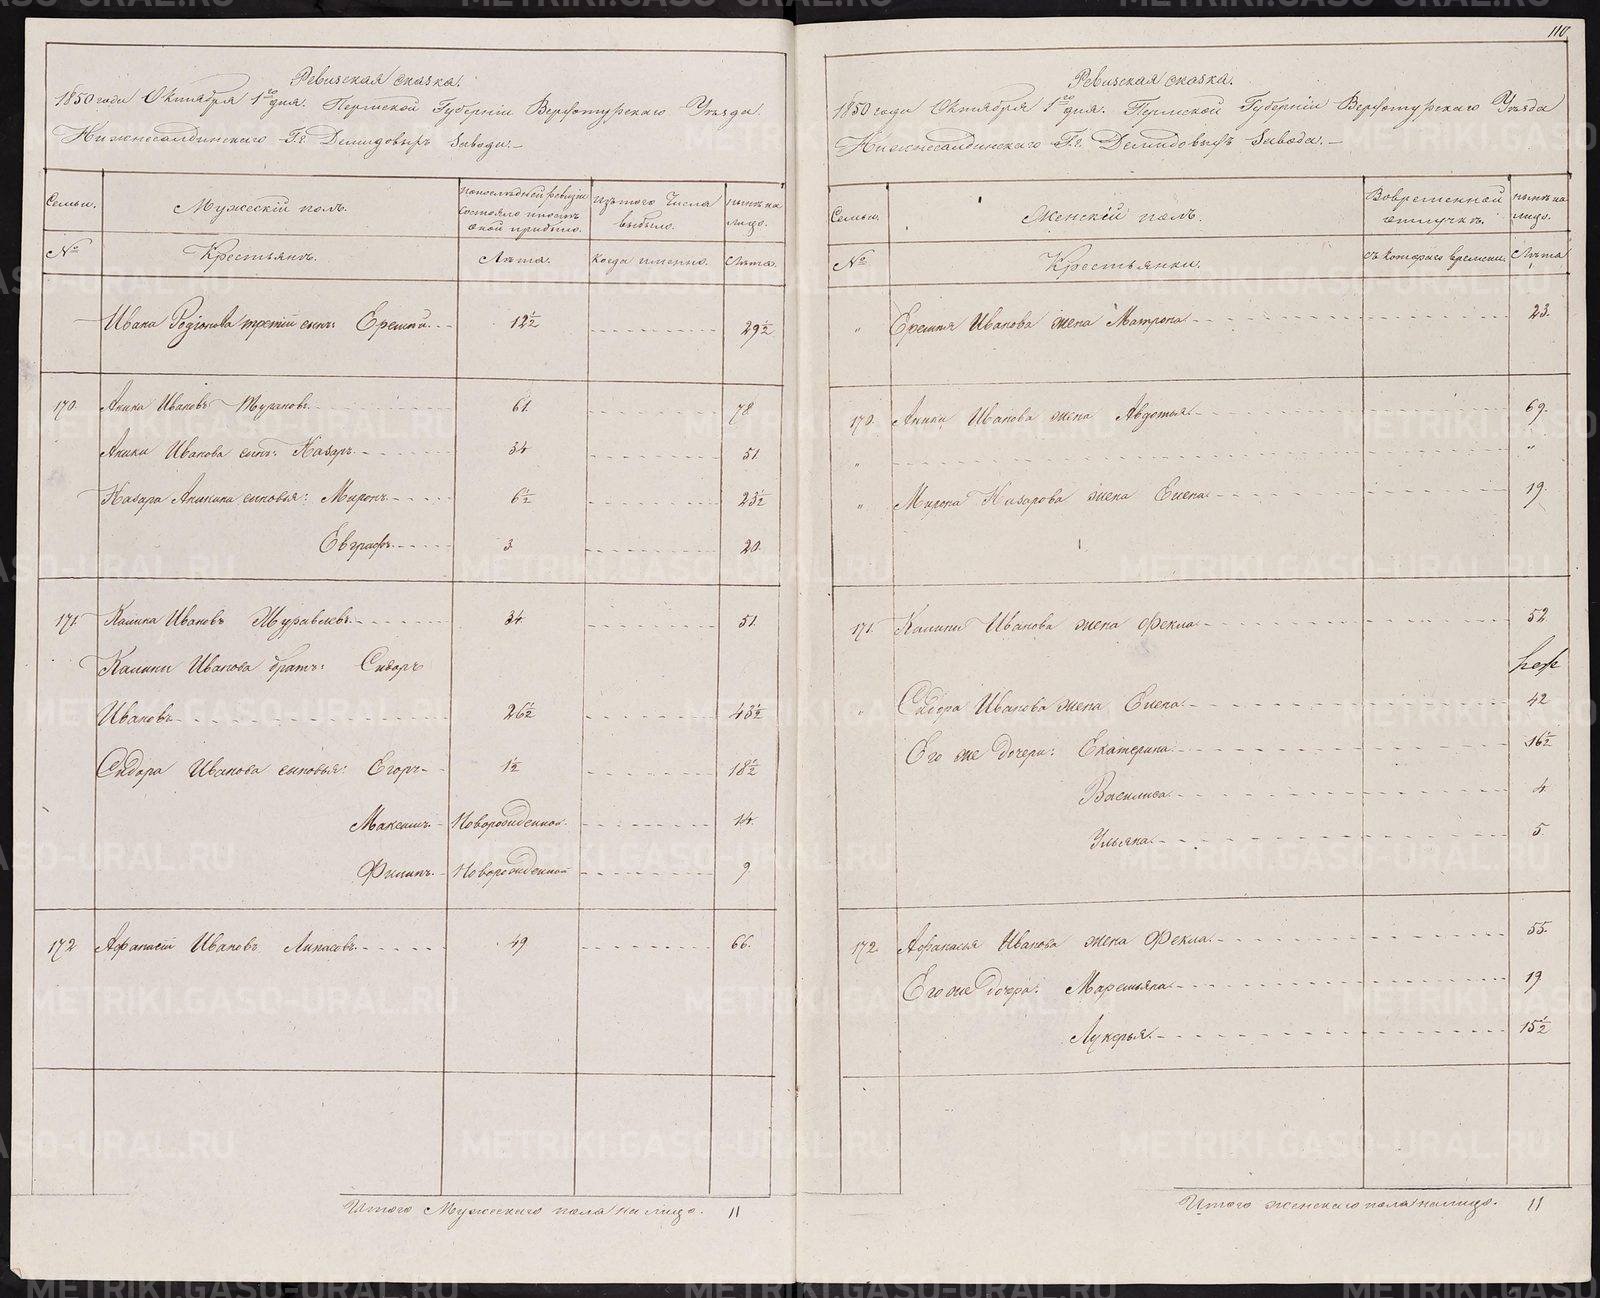 110
Ревизская сказка.
1850 года Октября 1го дня. Пермской Губернiи Верхотурскаго Уезда
Нижнесалдинскаго Гг. Демидовыхъ Завода.
Семьи.
Мужескiй полъ.
По последней ревизiи состояло и после оной прибыло.
Изъ того числа выбыло.
Ныне на лицо.
№
Крестьянъ.
Лета.
Когда именно.
Лета.
Ивана Родiонова третiй сынъ: Еремей 12½ 29½
170. Аника Ивановъ 61. 78
Аники Иванова сынъ: Назаръ 34 51
Назара Аникина сыновья: Миронъ 6½ 23½
Евграфъ 3 20.
171. Калина Ивановъ Журавлевъ 34. 51.
Калины Иванова братъ: Сидоръ
Ивановъ 26½ 43½
Сидора Иванова сыновья: Егоръ 1½ 18½
Максимъ Новорожденной 14.
Филипъ Новорожденной 9
172 Афанасiй Ивановъ 49 66.
Итого Мужескаго пола на лицо. 11
Ревизская сказка.
1850 года Октября 1го дня. Пермской Губернiи Верхотурскаго Уезда
Нижнесалдинскаго Гг. Демидовыхъ Завода.
Семьи.
Женскiй полъ.
Во временной отлучке.
Ныне на лицо.
№
Крестьянки.
Съ котораго времени.
Лета
" Еремея Иванова жена Матрона 23.
170. Аники Иванова жена Авдотья 69.
" "
" Мирона Назарова жена Елена 19.
171. Калины Иванова жена Фекла 52
" Сидора Иванова жена Елена 42
Его же дочери: Екатерина 16½
Василиса 4
Ульяна 5.
172. Афанасья Иванова жена Фекла 55.
Его же дочери: Маремьяна 19
Лукерья 15½
Итого женскаго пола на лицо. 11
METRIKI.GASO-URAL.RU